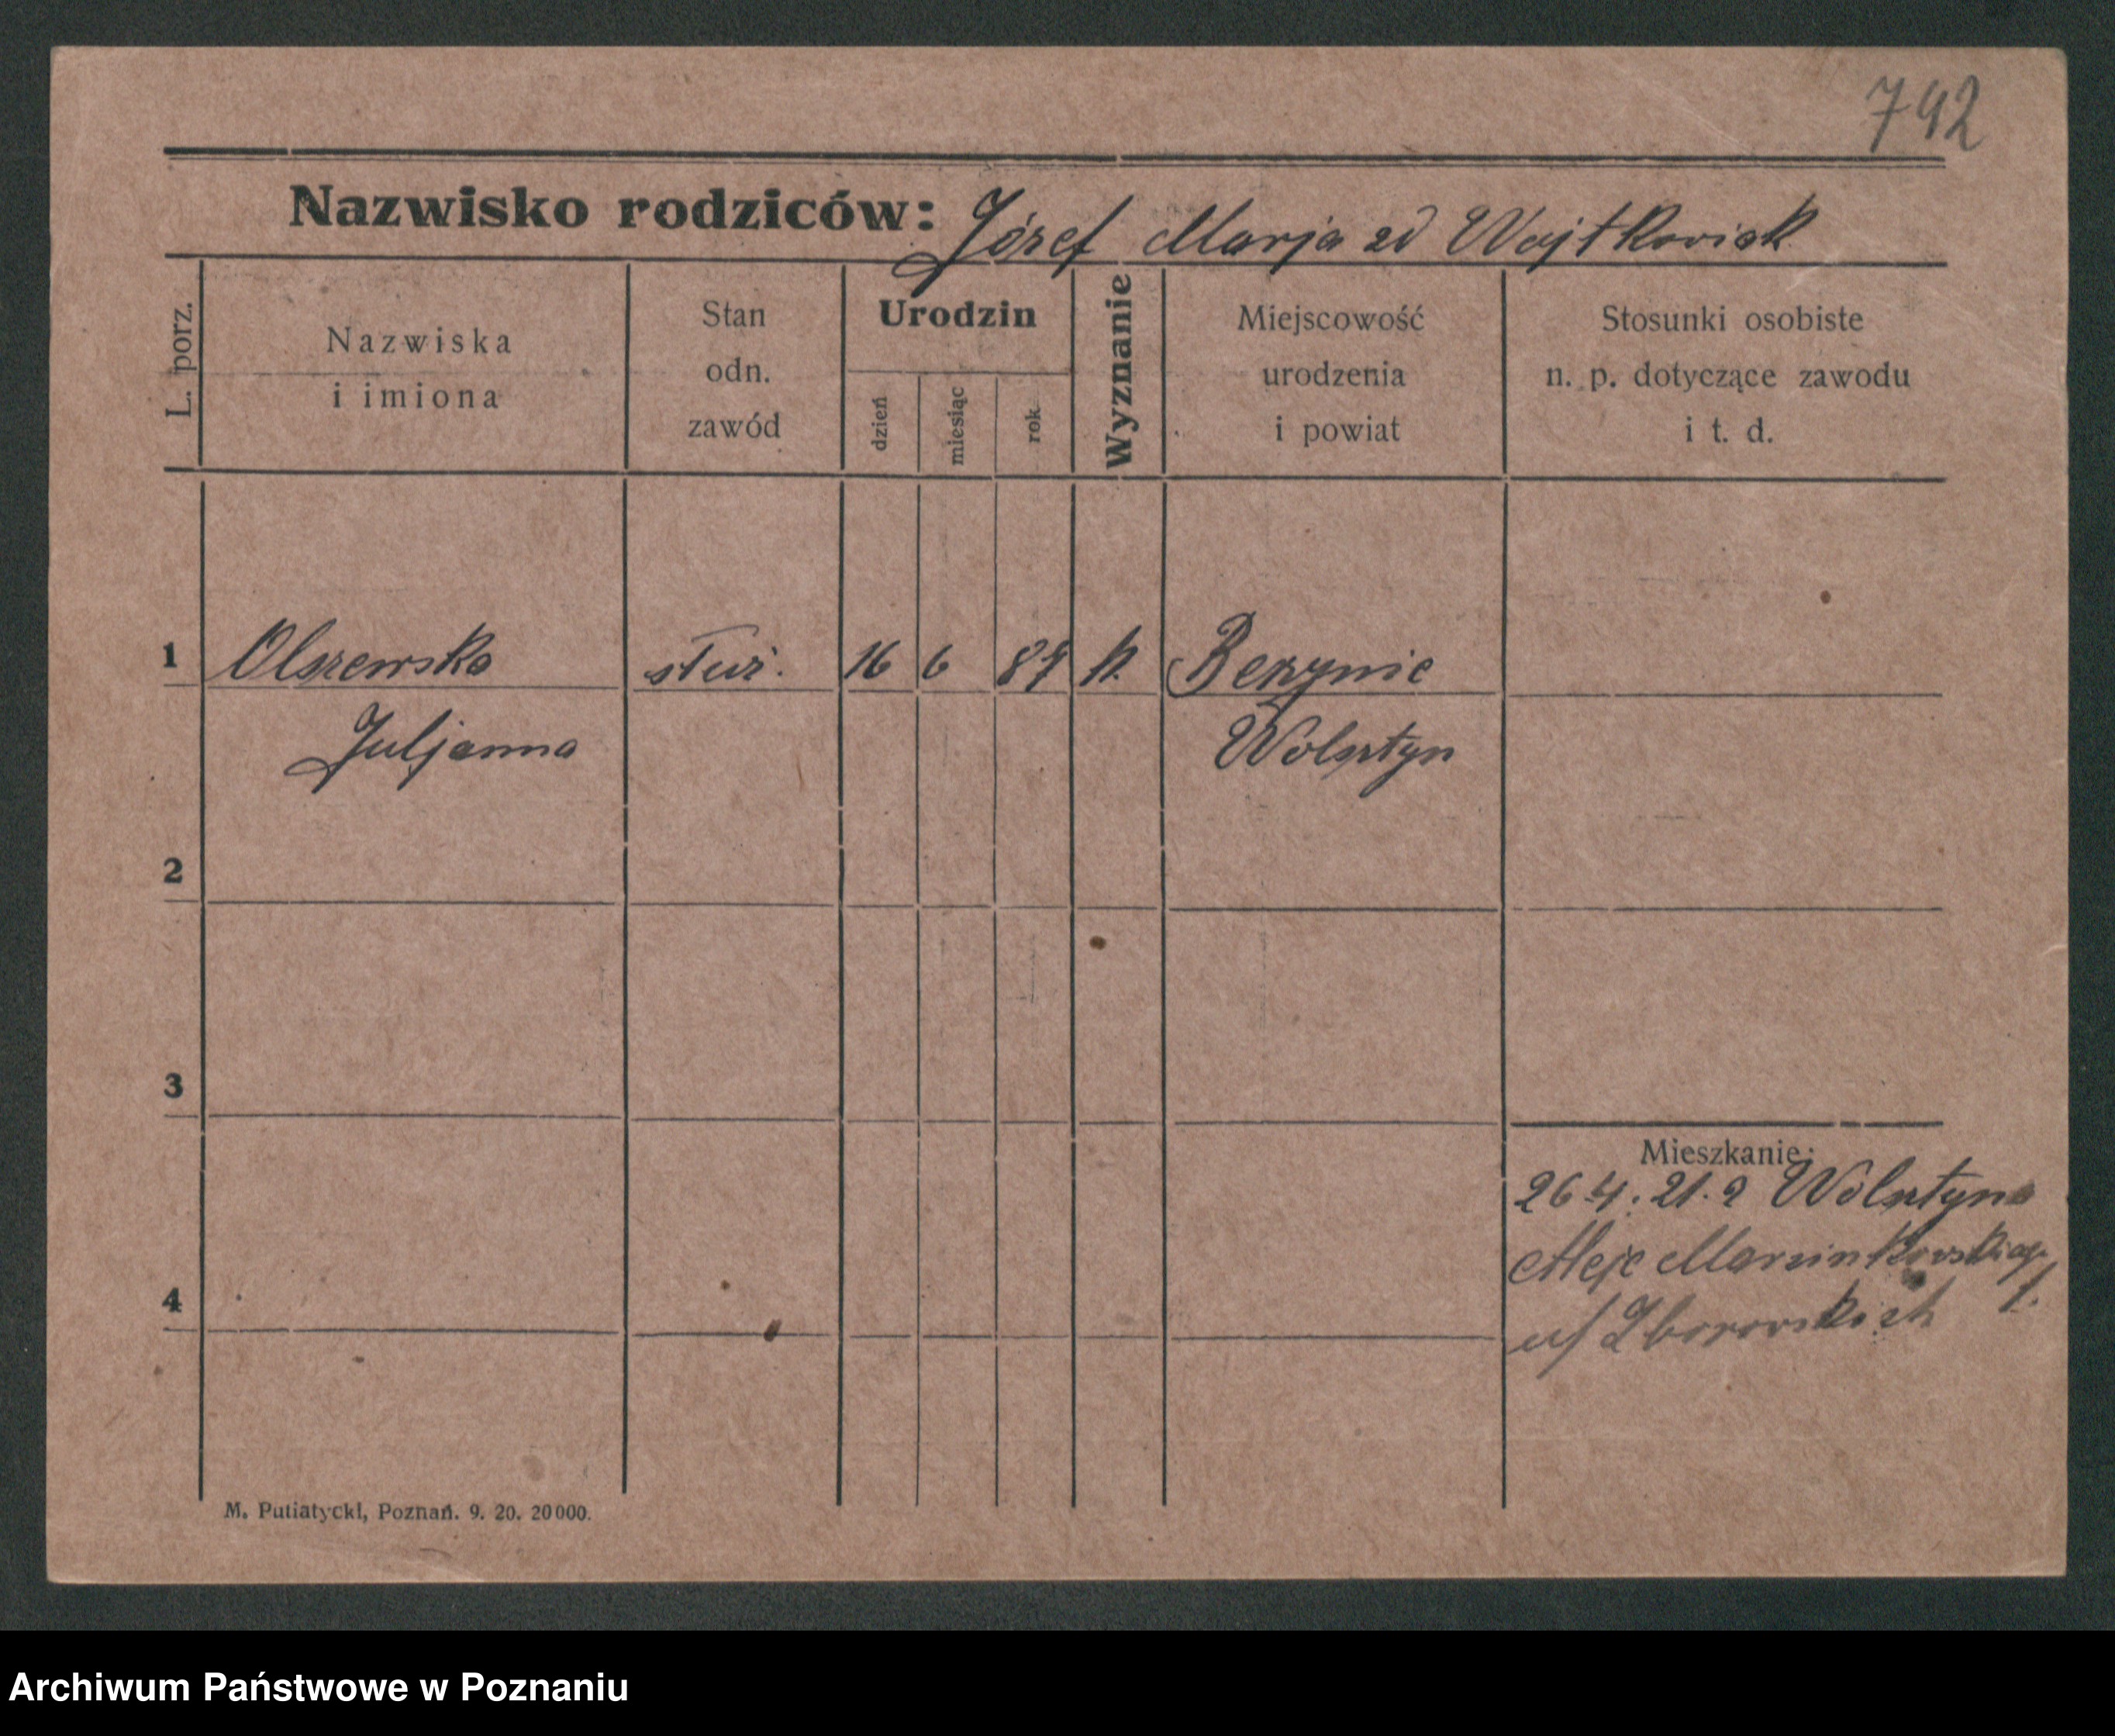 742
Nazwisko rodziców: Józef Marja zd Wojtkowiak
L. porz.
Nazwiska
i imiona
Stan
odn.
zawód
Urodzin
dzień
miesiąc
rok
Wyznanie
Miejscowość
urodzenia
i powiat
Stosunki osobiste
n. p. dotyczące zawodu
i t. d.
1 Olszewska służ. 16 6 87 k. Berzynie
Juljanna Wolsztyn
2
3
Mieszkanie:
26.4.21. z Wolsztyna
Aleje Marcinkowskiego
1.
u/ Zborowskich
4
M. Putiatycki, Poznań. 9. 20. 20000.
Archiwum Państwowe w Poznaniu